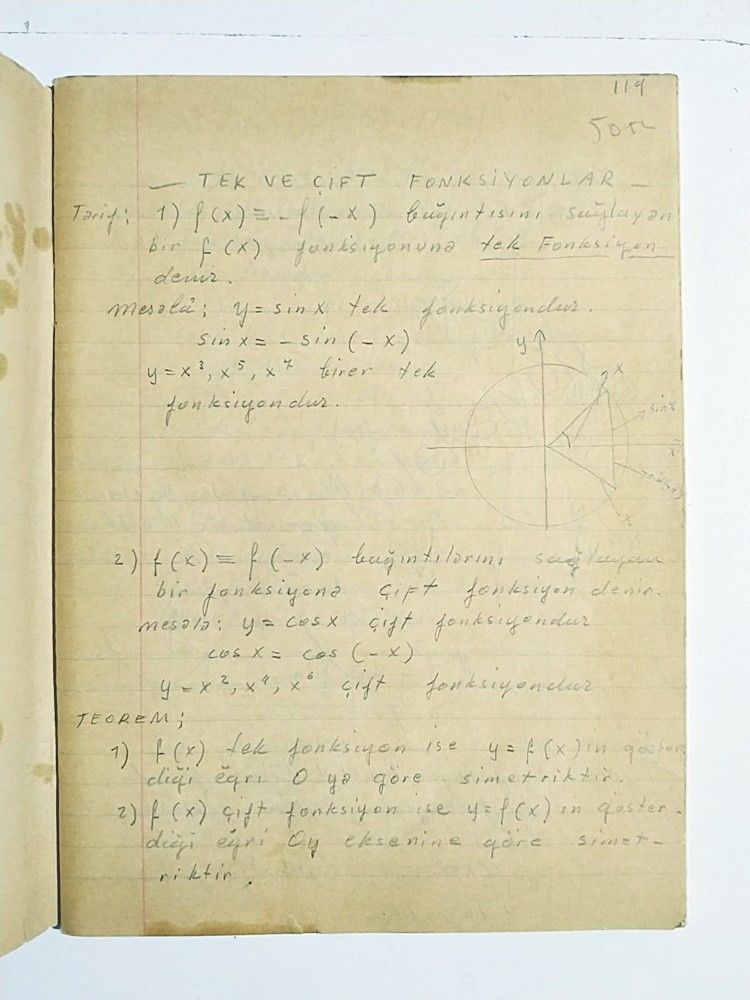 119
50 TL
— TEK VE ÇİFT FONKSİYONLAR —
Tarif: 1) f(x) ≡ -f(-x) bağıntısını sağlayan
bir f(x) fonksiyonuna tek Fonksiyon
denir.
Mesela: y = sin x tek fonksiyondur.
sin x = - sin (-x)
y = x³, x⁵, x⁷ birer tek
fonksiyondur.
y
x
sin x
x
-x
2) f(x) ≡ f(-x) bağıntılarını sağlayan
bir fonksiyona çift fonksiyon denir.
mesela: y = cos x çift fonksiyondur
cos x = cos (-x)
y = x², x⁴, x⁶ çift fonksiyondur
TEOREM;
1) f(x) tek fonksiyon ise y = f(x) in göster
diği eğri O ya göre simetriktir.
2) f(x) çift fonksiyon ise y = f(x) in göster-
diği eğri Oy eksenine göre simet-
riktir.